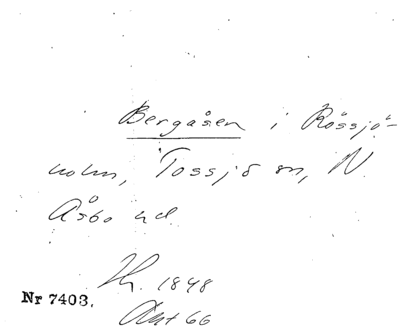 Bergåsen i Rössjö-
holm, Tossjö sn, N
Åsbo hd
Hr. 1848
Nr 7403.
Akt 66